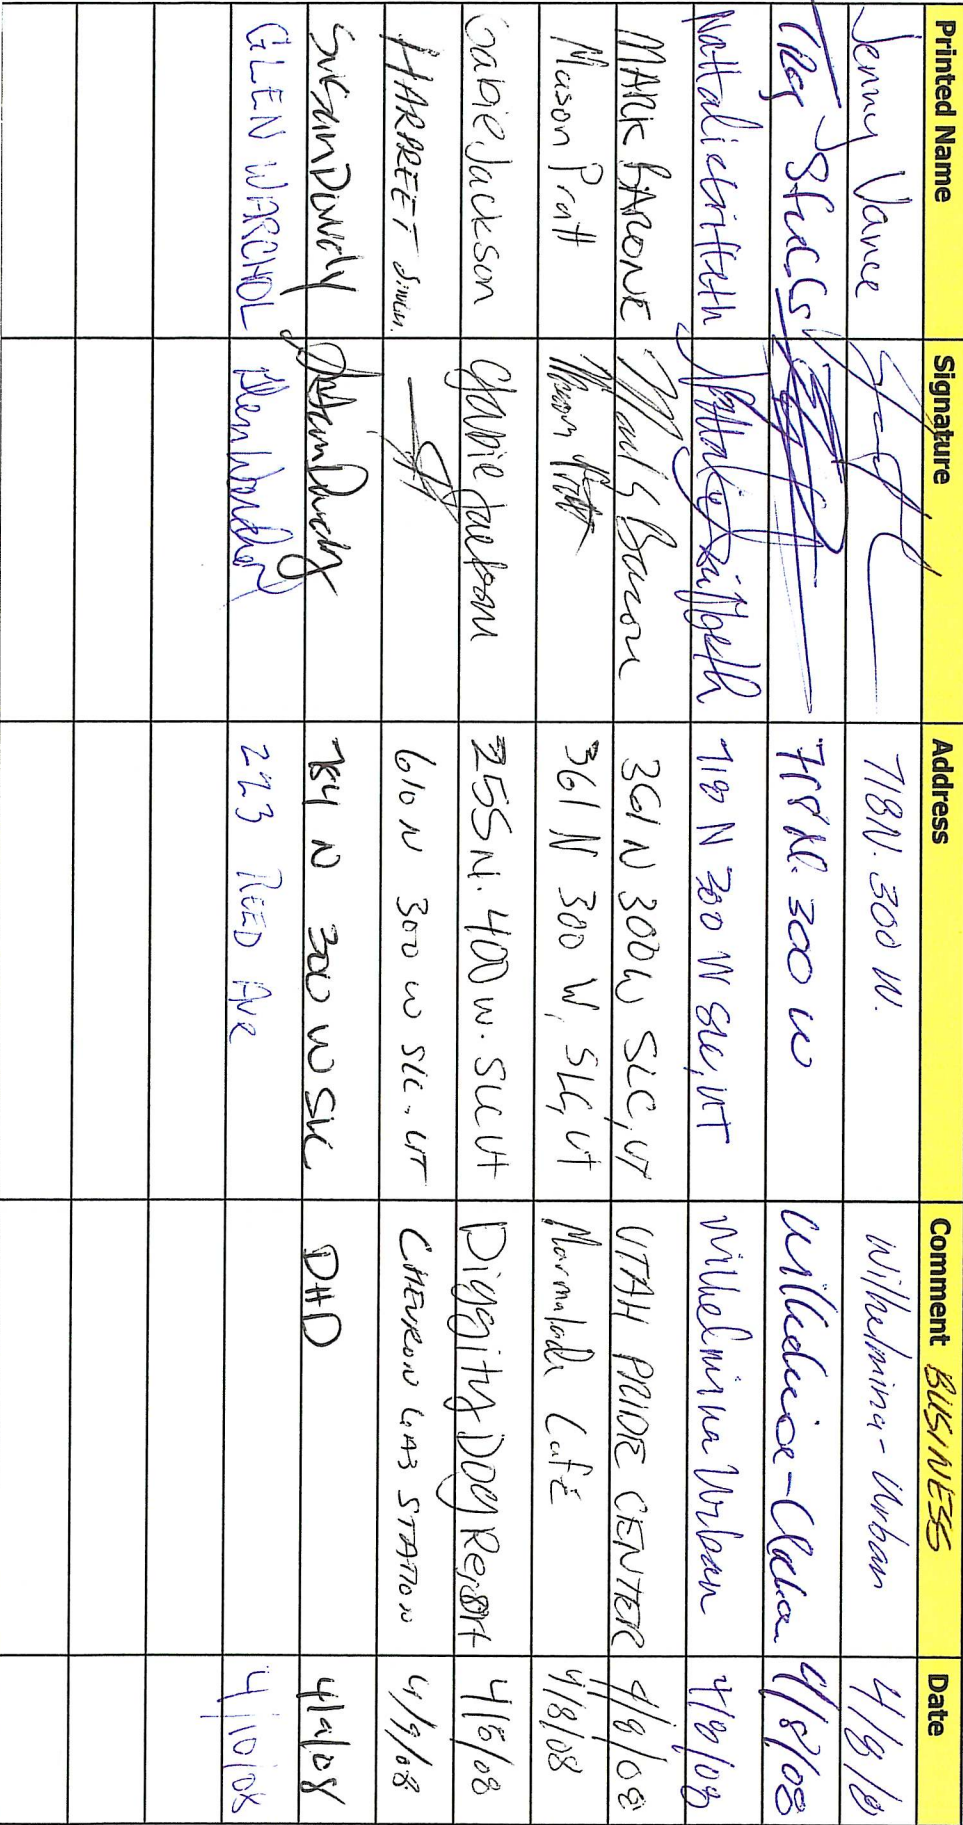 Printed Name Signature Address Comment BUSINESS Date
Jenny Vance 718 N. 300 W. Wilhelmina-Urban 4/8/0
718 N. 300 W 4/8/08
Nattalie 718 N 300 W SLC, UT Wilhelmina Urban 4/8/08
MARK BARONE Mark Barone 361 N 300 W SLC, UT UTAH PRIDE CENTER 4/8/08
Mason Pratt Mason Pratt 361 N 300 W, SLC, UT Marmalade Café 4/8/08
Gabie Jackson Gabie Jackson 255 N. 400 W. SLC UT Diggity Dog Resort 4/8/08
HARPREET 610 N 300 W SLC - UT CHEVRON GAS STATION 4/9/08
784 N 300 W SLC DHD 4/9/08
GLEN WARCHOL Glen Warchol 223 REED AVE 4/10/08